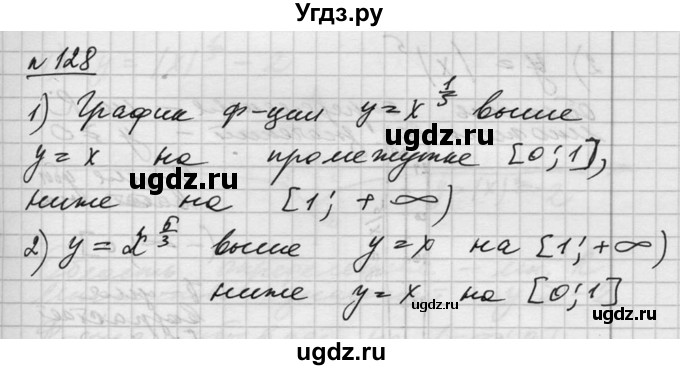 Угдз.ру
№ 128
1) График ф-ции y = x^{1/5} выше
y = x на промежутке [0; 1],
ниже на [1; +∞)
2) y = x^{5/3} выше y = x на [1; +∞)
ниже y = x на [0; 1]
ugdz.ru
ugdz.ru
ugdz.ru
ugdz.ru
ugdz.ru
ugdz.ru